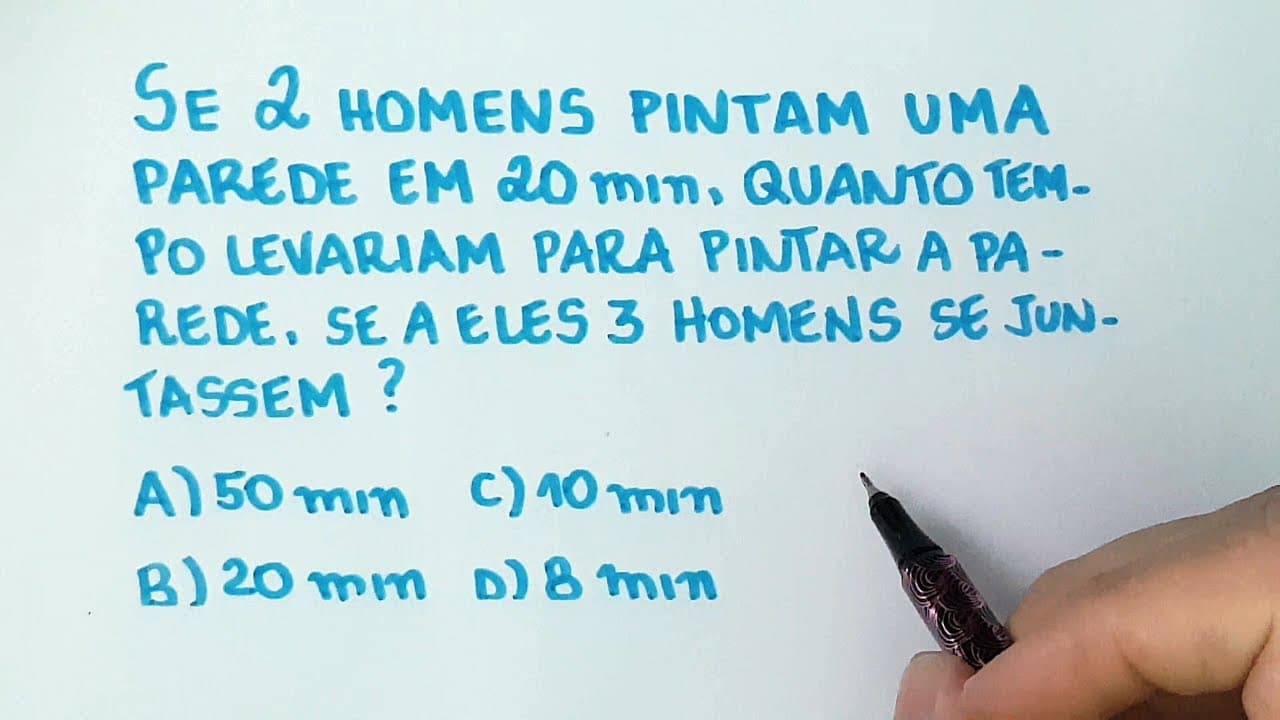 SE 2 HOMENS PINTAM UMA
PAREDE EM 20 min, QUANTO TEM-
PO LEVARIAM PARA PINTAR A PA-
REDE, SE A ELES 3 HOMENS SE JUN-
TASSEM ?
A) 50 min C) 10 min
B) 20 min D) 8 min